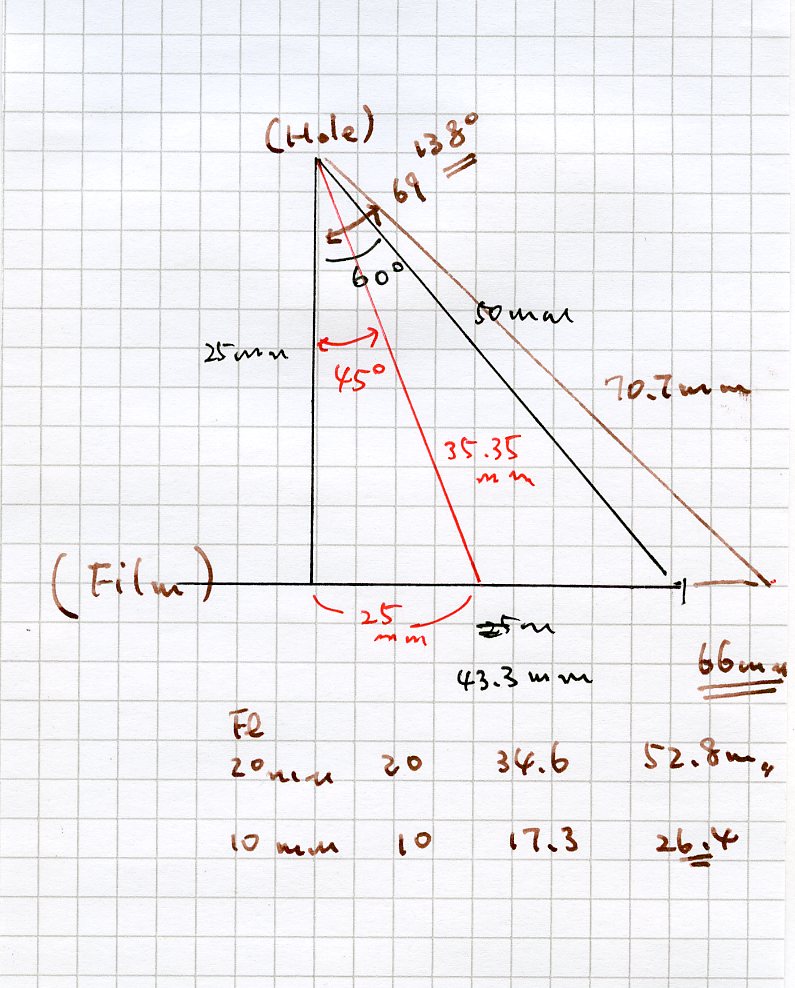 (Hole)
138°
69
60°
50mm
25mm
45°
70.7mm
35.35
mm
(Film)
25
mm
25m
43.3mm
66mm
Fl
20mm 20 34.6 52.8m
10mm 10 17.3 26.4